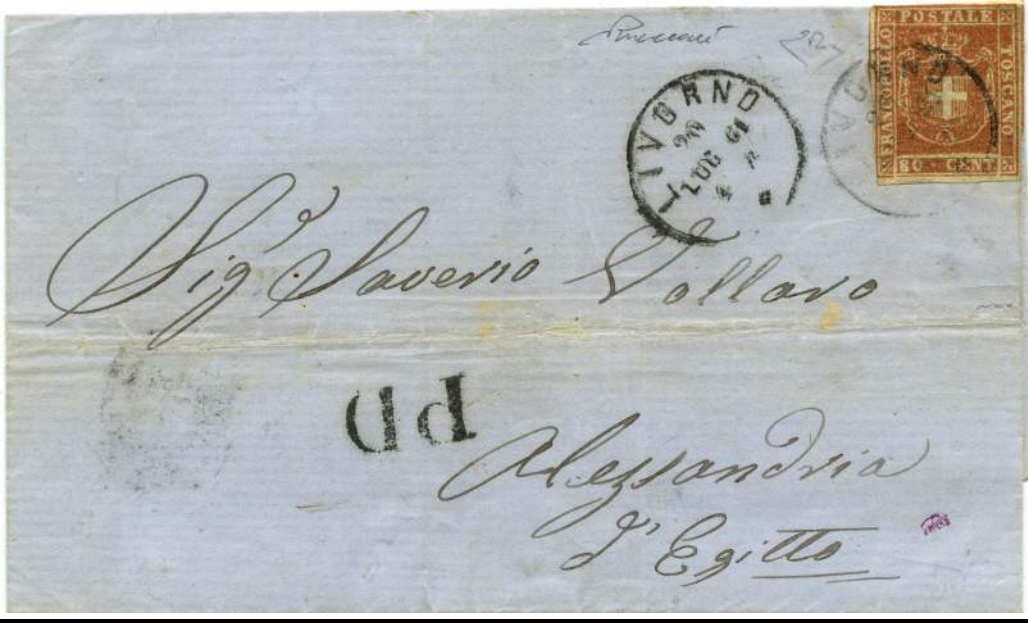 POSTALE
FRANCOBOLLO
TOSCANO
80 CENT
LIVORNO
20
LUG 61
LIVORNO
Sig.r Saverio Vollaro
PD
Alessandria
d'Egitto